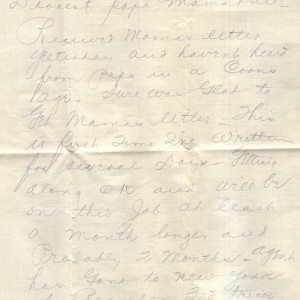 Dearest Papa Mama
Received Mamas letter
yesterday and havent heard
from Papa in a Coons
Age. Sure was Glad to
Get Mamas letter - This
is first Time Ive Written
for several Days - Getting
along OK and will be
on this Job At least
a Month longer and
Probably 2 Months -
has Gone to New York